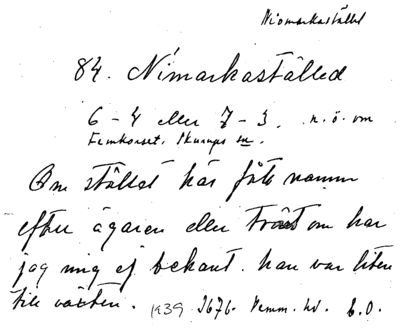 Niomarkastället
84. Nimarkaställed
6 - 4 eller 7 - 3. n.ö. om
Femkorset. Skurups sn.
Om stället har fått namn
efter ägaren eller tvärt om har
jag mig ej bekant. han var liten
till växten. 1939 3676. Vemm. hd. E.O.